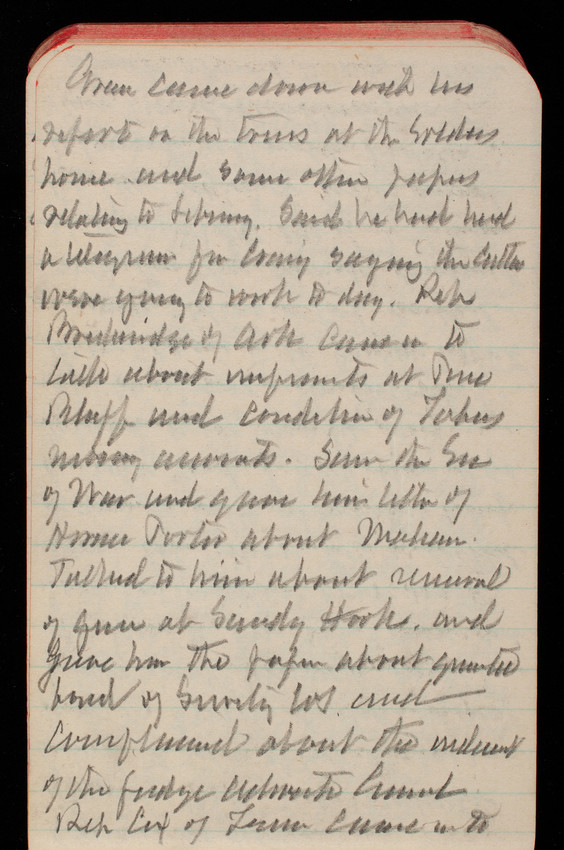 Green came down with his
report on the trees at the Soldiers
home and some other papers
relating to . Said he had had
a telegram from Craig saying the cutter
were going to work to day. Rep
Breckinridge of Ark came in to
talk about improvements at Pine
Bluff and condition of Forbes
money accounts. Saw the Sec
of War and gave him letter of
Horace Porter about .
Talked to him about removal
of gun at Sandy Hook. and
gave him the paper about
bond of Surety Cos and
complained about the
of the
Rep Cox of Tenn came in to